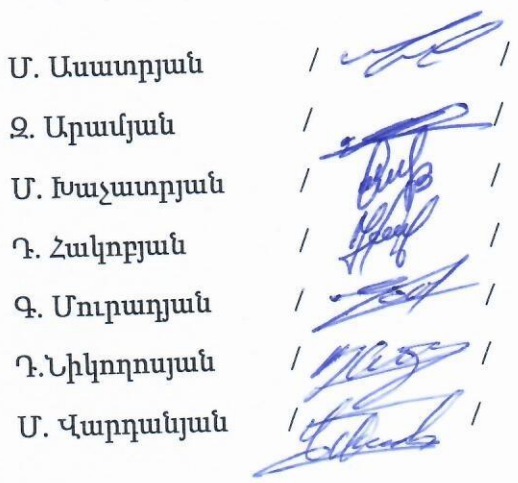 Մ. Ասատրյան / /
Զ. Արամյան / /
Մ. Խաչատրյան / /
Դ. Հակոբյան / /
Գ. Մուրադյան / /
Դ.Նիկողոսյան / /
Մ. Վարդանյան / /